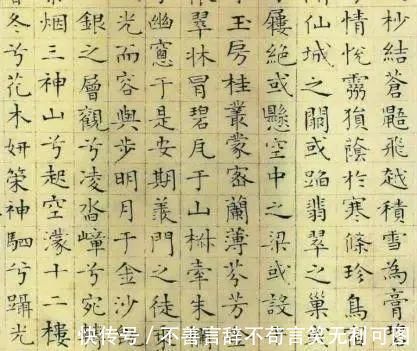 杪結蒼鼯飛越積雪為膏
情悅霧猿蔭於寒條珍鳥
仙城之闕或蹈翡翠之巢
屨絕或懸空中之梁或設
玉房桂叢蒙密蘭薄芬芳
翠牀冒碧瓦于山椒牽朱
幽窻于是安期羨門之徒
光而容與步明月于金沙
銀之層觀兮凌沓嶂兮宛
烟三神山兮起空濛十二樓
冬兮花木妍策神駟兮躡光
快传号／不善言辞不苟言笑无利可图